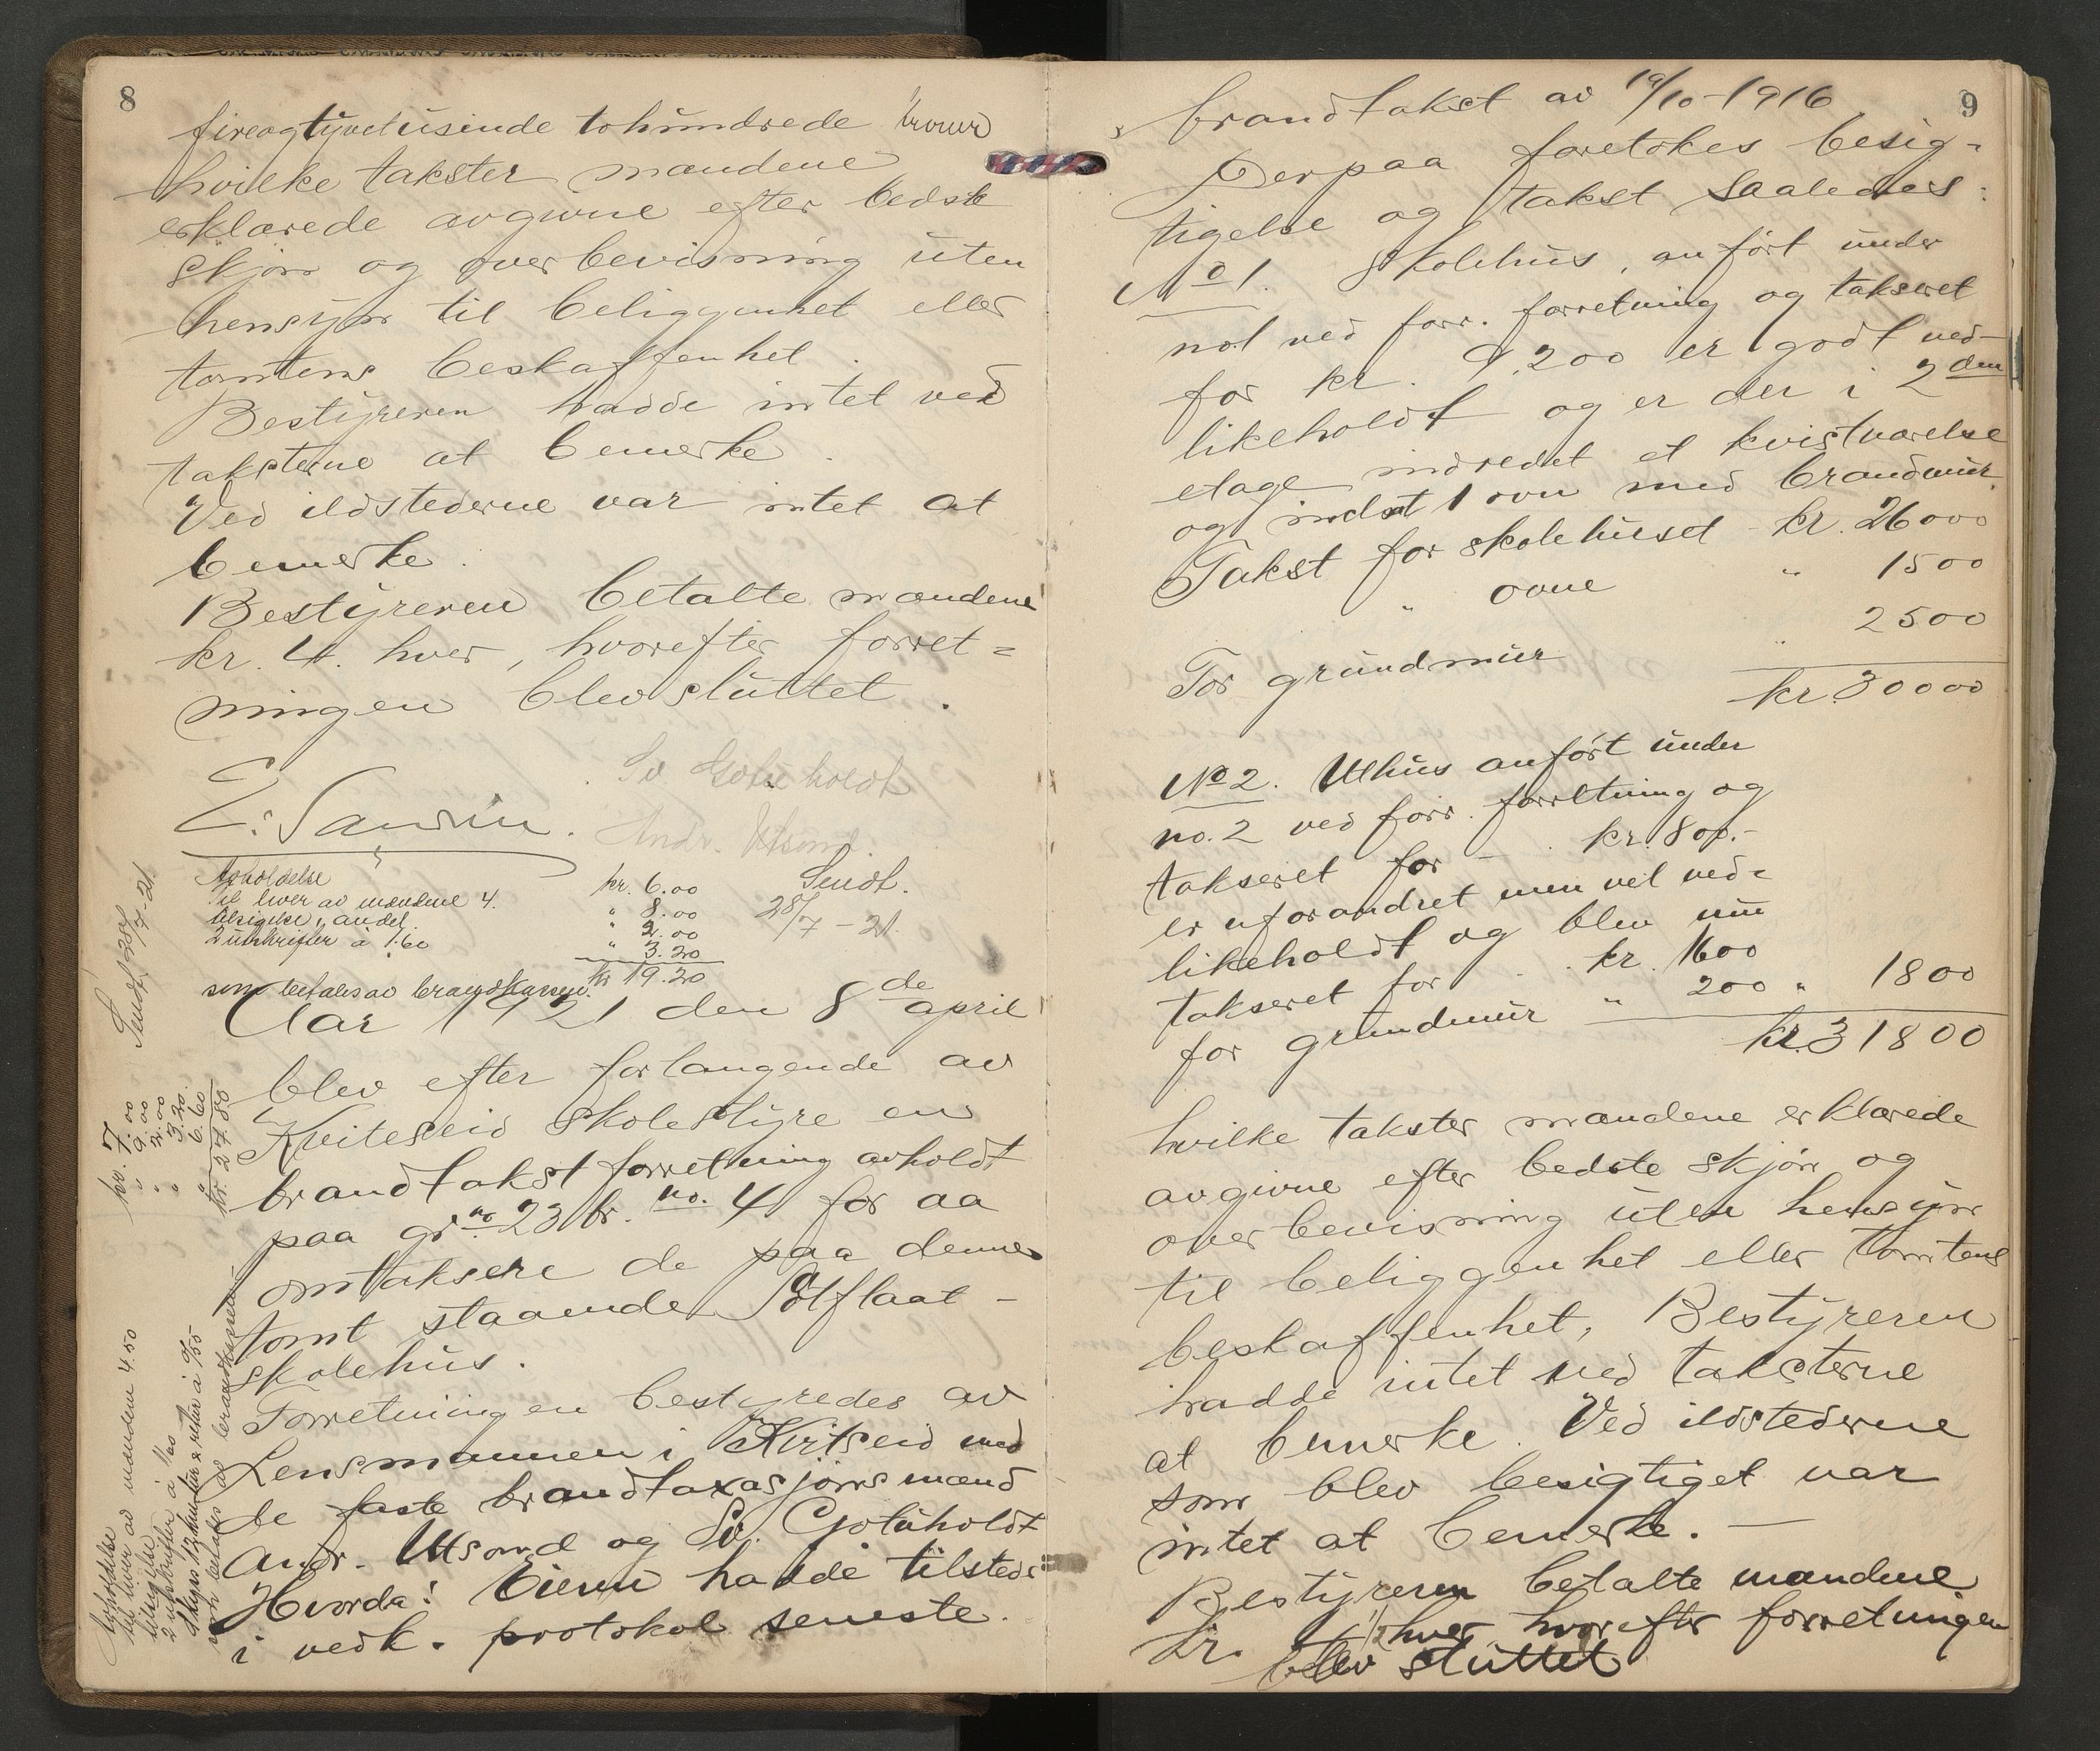 8
fireogtyvetusinde tohundrede kroner
hvilke takster mændene
erklærede avgivne efter bedste
skjøn og overbevisning uten
hensyn til beliggenhet eller
tomtens beskaffenhet.
Bestyreren hadde intet ved
taksterne at bemerke.
Ved ildstederne var intet at
bemerke.
Bestyreren betalte mændene
kr. 4. hver, hvorefter forret=
ningen blev sluttet.
Sv. Gotuholdt
Andr. Utsond.
Avholdelse kr. 6.00
til hver av mændene 4. " 8.00
tilsigelse, andel " 2.00
2 utskrifter à 1.60 " 3.20
som betales av brandkassen. kr 19.20
Sendt.
28/7 - 21.
Aar 1921 den 8de april
blev efter forlangende av
Kviteseid skolestyre en
brandtakstforretning avholdt
paa gr. no. 23 br. no. 4 for aa
omtaksere de paa denne
tomt staaende Pötflaat-
skolehus.
Forretningen bestyredes av
Lensmannen i Kvitseid med
de faste brandtaxasjonsmænd
Andr. Utsond og Sv. Gotuholdt
Hvorda:
hadde tilstede
i vedk. protokol seneste
Sendt 28/7-21.
Avholdelse kr. 7.00
til hver av mændene 4.50 " 9.00
tilsigelse " 2.00
2 utskrifter à 1/60 " 3.20
Skyss 12 km tur & retur à 0/55 " 6.60
som betales av brandkassen kr. 27.80
9
brandtakst av 19/10-1916
Derpaa foretokes besig-
tigelse og takst saaledes:
No 1. Skolehus, anført under
no 1 ved forr. forretning og takseret
for kr. 9.200 er godt ved-
likeholdt og er der i 2den
etage indredet et kvistværelse
og indsat 1 ovn med brandmur.
Takst for skolehuset kr. 26000
" ovne " 1500
For grundmur " 2500
kr. 30000
No 2. Uthus anført under
no. 2 ved forr. forretning og
takseret for - kr. 800.-
er uforandret men vel ved=
likeholdt og blev nu
takseret for . . kr. 1600
for grundmur " 200 " 1800
kr. 31800
hvilke takster mændene erklærede
avgivne efter bedste skjøn og
overbevisning uten hensyn
til beliggenhet eller tomtens
beskaffenhet, Bestyreren
hadde intet ved taksterne
at bemerke. Ved ildstederne
som blev besigtiget var
intet at bemerke. -
Bestyreren betalte mændene
kr. 4 1/2 hver hvorefter forretningen
blev sluttet